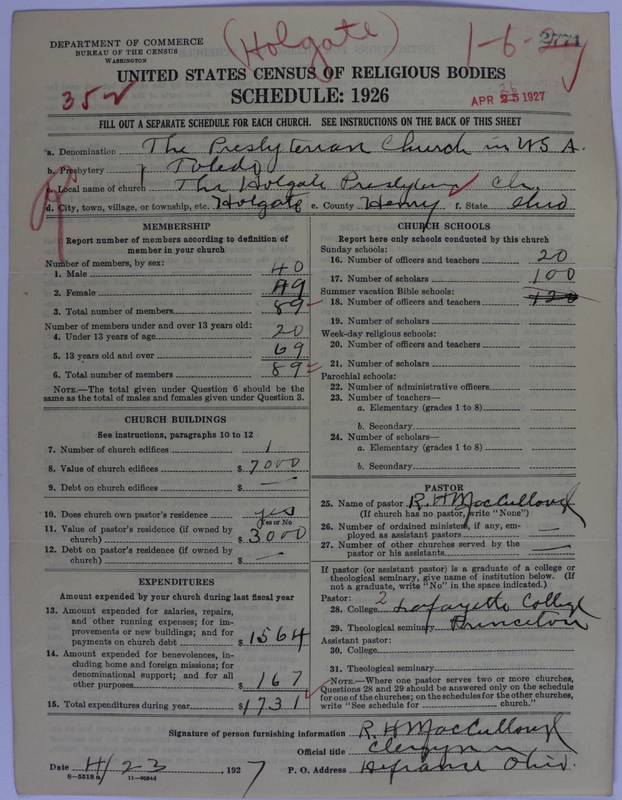 DEPARTMENT OF COMMERCE
BUREAU OF THE CENSUS
WASHINGTON
(Holgate)
1-6-
2771
UNITED STATES CENSUS OF RELIGIOUS BODIES
SCHEDULE: 1926
352
APR 25 1927
26
FILL OUT A SEPARATE SCHEDULE FOR EACH CHURCH. SEE INSTRUCTIONS ON THE BACK OF THIS SHEET
a. Denomination The Presbyterian Church in U S A.
b. Presbytery Toledo
c. Local name of church The Holgate Presbyterian Ch
d. City, town, village, or township, etc. Holgate e. County Henry f. State Ohio
MEMBERSHIP
Report number of members according to definition of member in your church
Number of members, by sex:
1. Male 40
2. Female 49
3. Total number of members 89
Number of members under and over 13 years old:
4. Under 13 years of age 20
5. 13 years old and over 69
6. Total number of members 89
NOTE.—The total given under Question 6 should be the same as the total of males and females given under Question 3.
CHURCH BUILDINGS
See instructions, paragraphs 10 to 12
7. Number of church edifices 1
8. Value of church edifices $ 7000
9. Debt on church edifices $ —
10. Does church own pastor's residence yes
(Yes or No)
11. Value of pastor's residence (if owned by church) $ 3000
12. Debt on pastor's residence (if owned by church) $ —
EXPENDITURES
Amount expended by your church during last fiscal year
13. Amount expended for salaries, repairs, and other running expenses; for improvements or new buildings; and for payments on church debt $ 1564
14. Amount expended for benevolences, including home and foreign missions; for denominational support; and for all other purposes $ 167
15. Total expenditures during year $ 1731
CHURCH SCHOOLS
Report here only schools conducted by this church
Sunday schools:
16. Number of officers and teachers 20
17. Number of scholars 100
Summer vacation Bible schools:
18. Number of officers and teachers 120
19. Number of scholars
Week-day religious schools:
20. Number of officers and teachers
21. Number of scholars
Parochial schools:
22. Number of administrative officers
23. Number of teachers—
a. Elementary (grades 1 to 8)
b. Secondary
24. Number of scholars—
a. Elementary (grades 1 to 8)
b. Secondary
PASTOR
25. Name of pastor R. H MacCullough
(If church has no pastor, write "None")
26. Number of ordained ministers, if any, employed as assistant pastors —
27. Number of other churches served by the pastor or his assistants —
If pastor (or assistant pastor) is a graduate of a college or theological seminary, give name of institution below. (If not a graduate, write "No" in the space indicated.)
Pastor: 2
28. College Lafayette College
29. Theological seminary Princeton
Assistant pastor:
30. College
31. Theological seminary
NOTE.—Where one pastor serves two or more churches, Questions 28 and 29 should be answered only on the schedule for one of the churches; on the schedules for the other churches, write "See schedule for church."
Signature of person furnishing information R. H MacCullough
Official title Clergyman
Date 4/23, 1927 P. O. Address Defiance Ohio.
8—5518a 11—9084d